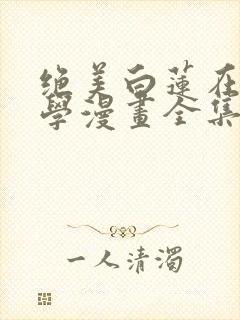 绝美白蓮在
學漫畫全集
一人清濁